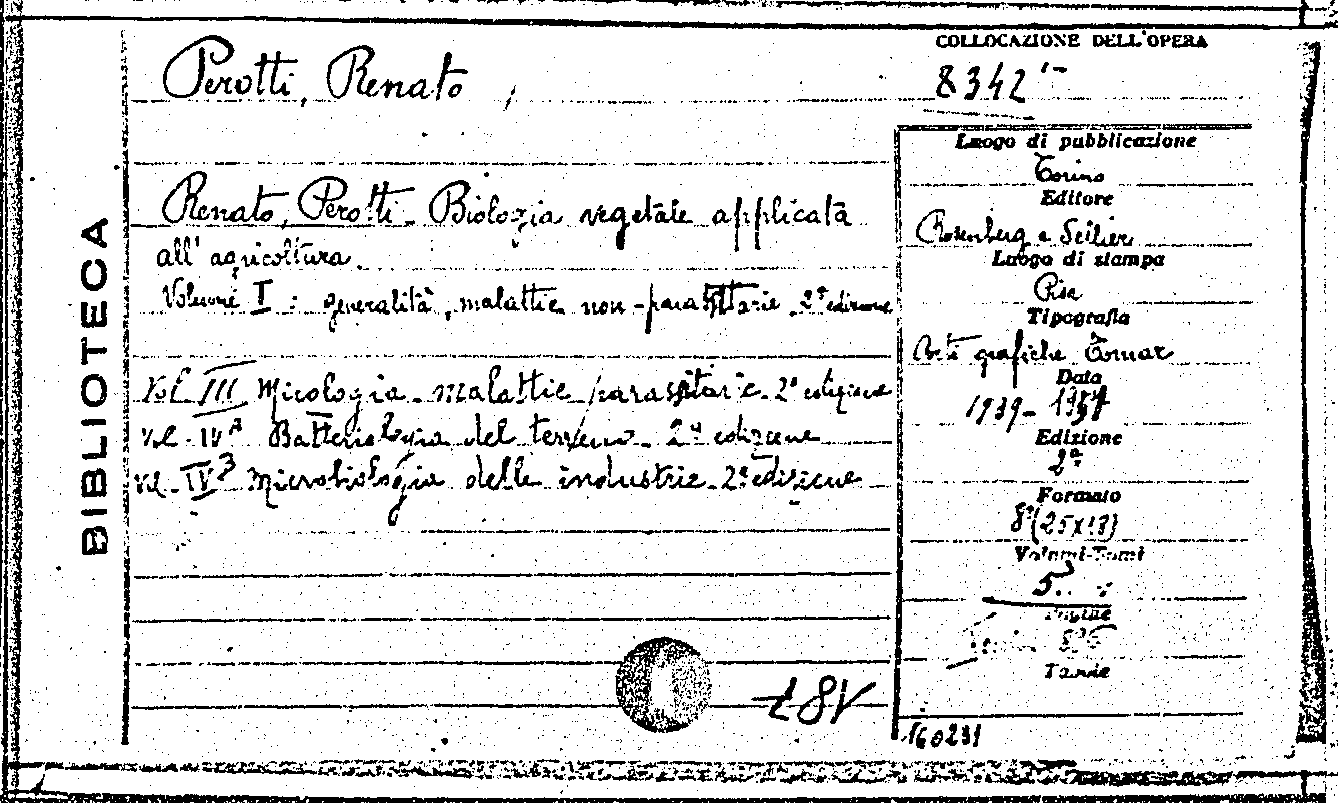 COLLOCAZIONE DELL'OPERA
8342
Perotti, Renato
BIBLIOTECA
Renato, Perotti. Biologia vegetale applicata
all' agricoltura.
Volume I : generalità, malattie non-parassitarie. 2ª edizione
Vol III Micologia. malattie parassitarie. 2ª edizione
Vol. IV Batteriologia del terreno. 2ª edizione
Vol. IV Microbiologia delle industrie. 2ª edizione
Luogo di pubblicazione
Torino
Editore
Rosenberg e Sellier
Luogo di stampa
Pisa
Tipografia
Arti grafiche Tornar
Data
1939-
Edizione
2ª
Formato
8°(25x18)
Volumi-Tomi
5
Pagine
Tavole
160231